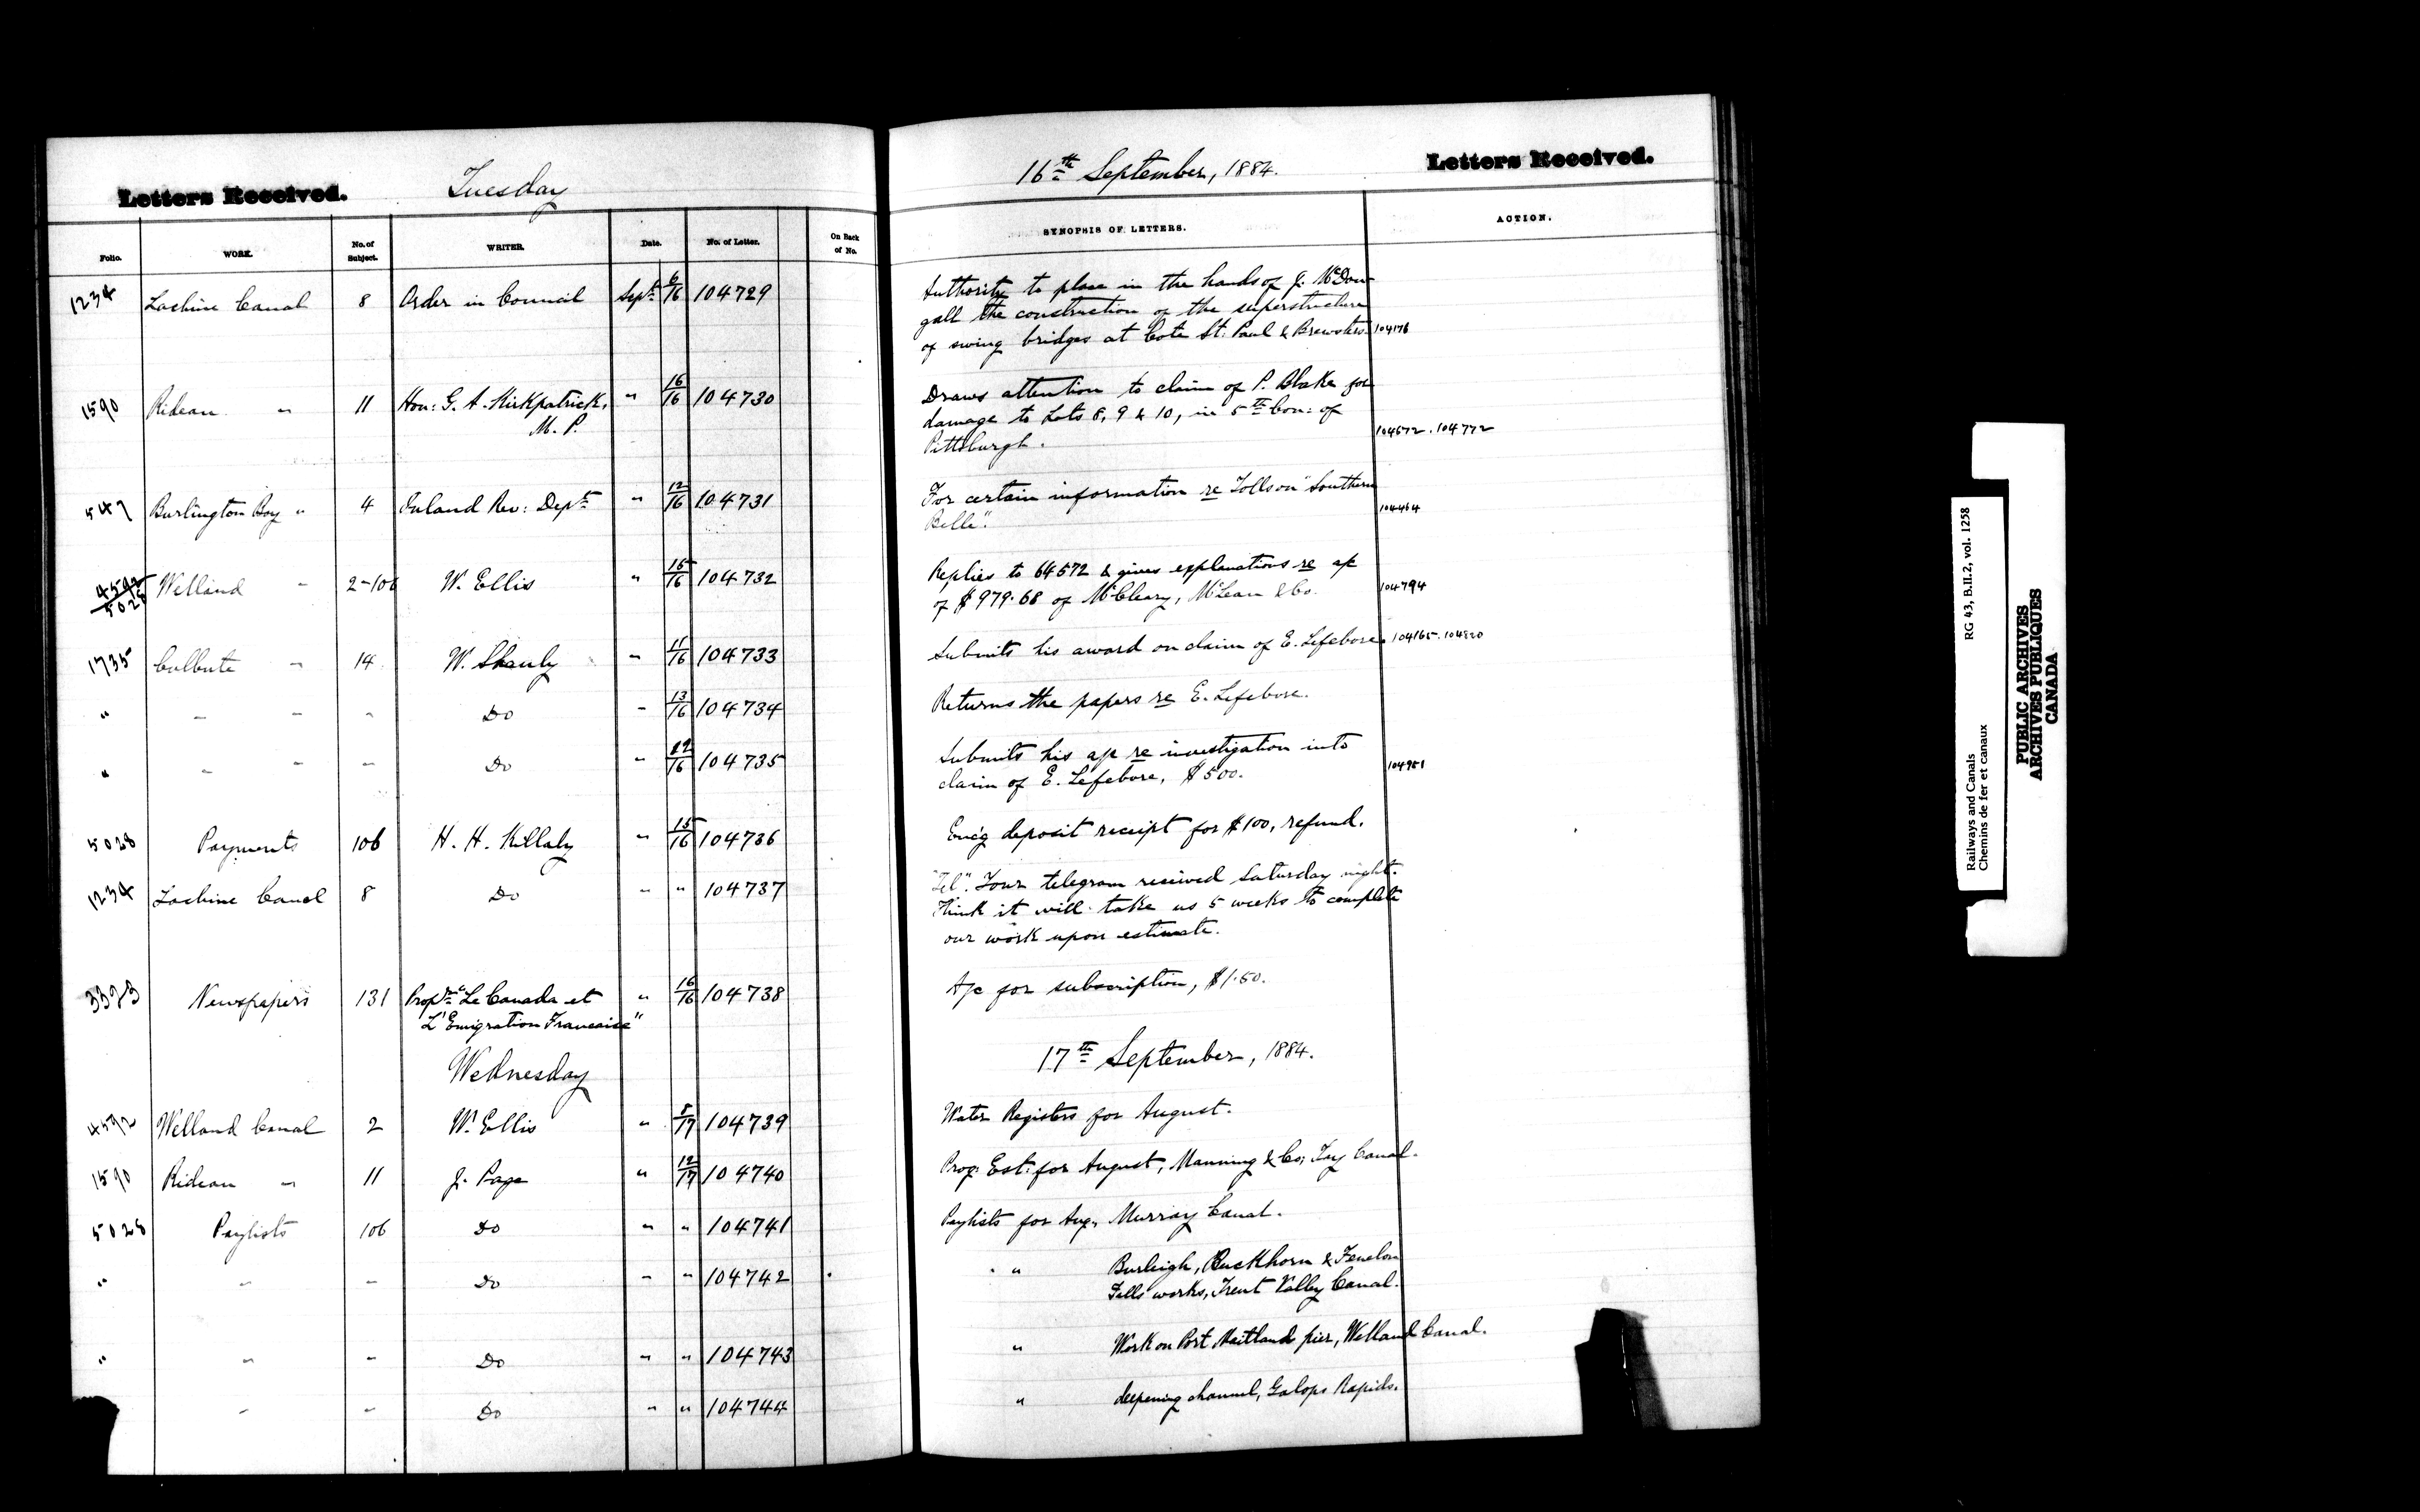 Letters Received. Tuesday 16th September, 1884. Letters Received.
Folio. WORK. No. of Subject. WRITER. Date. No. of Letter. On Back of No. SYNOPSIS OF LETTERS. ACTION.
1234 Lachine Canal 8 Order in Council Sept. 6/16 104729 Authority to place in the hands of J. McDou-
gall the construction of the superstructure
of swing bridges at Cote St. Paul & Brewsters. 104176
1590 Rideau " 11 Hon: G. A. Kirkpatrick, " 16/16 104730 Draws attention to claim of P. Blake for
M. P. damage to Lots 8, 9 & 10, in 5th Con: of
Pittsburgh. 104672. 104772
547 Burlington Bay " 4 Inland Rev: Dept " 12/16 104731 For certain information re Tolls on "Southern
Belle". 104464
4592/5028 Welland " 2-106 W. Ellis " 15/16 104732 Replies to 64572 & gives explanations re a/c
of $979.68 of McCleary, McLean & Co. 104794
1735 Culbute " 14 W. Shanly " 11/16 104733 Submits his award on claim of E. Lefebvre. 104165. 104820
" " " " Do " 13/16 104734 Returns the papers re E. Lefebvre.
" " " " Do " 12/16 104735 Submits his a/c re investigation into
claim of E. Lefebvre, $500. 104951
5028 Payments 106 H. H. Killaly " 15/16 104736 Encg deposit receipt for $100, refund.
1234 Lachine Canal 8 Do " " 104737 "Tel". Your telegram received Saturday night.
Think it will take us 5 weeks to complete
our work upon estimate.
3323 Newspapers 131 Proprs "Le Canada et " 16/16 104738 A/c for subscription, $1.50.
L'Emigration Francaise"
Wednesday 17th September, 1884.
4592 Welland Canal 2 W. Ellis " 8/17 104739 Water Registers for August.
1590 Rideau " 11 J. Page " 12/17 104740 Prog: Est: for August, Manning & Co; Tay Canal.
5028 Paylists 106 Do " " 104741 Paylists for Aug, Murray Canal.
" " " Do " " 104742 " Burleigh, Buckhorn & Fenelon
Falls works, Trent Valley Canal.
" " " Do " " 104743 " Work on Port Maitland pier, Welland Canal.
" " Do " " 104744 " deepening channel, Galops Rapids.
Railways and Canals RG 43, B.II.2, vol. 1258
Chemins de fer et canaux
PUBLIC ARCHIVES
ARCHIVES PUBLIQUES
CANADA